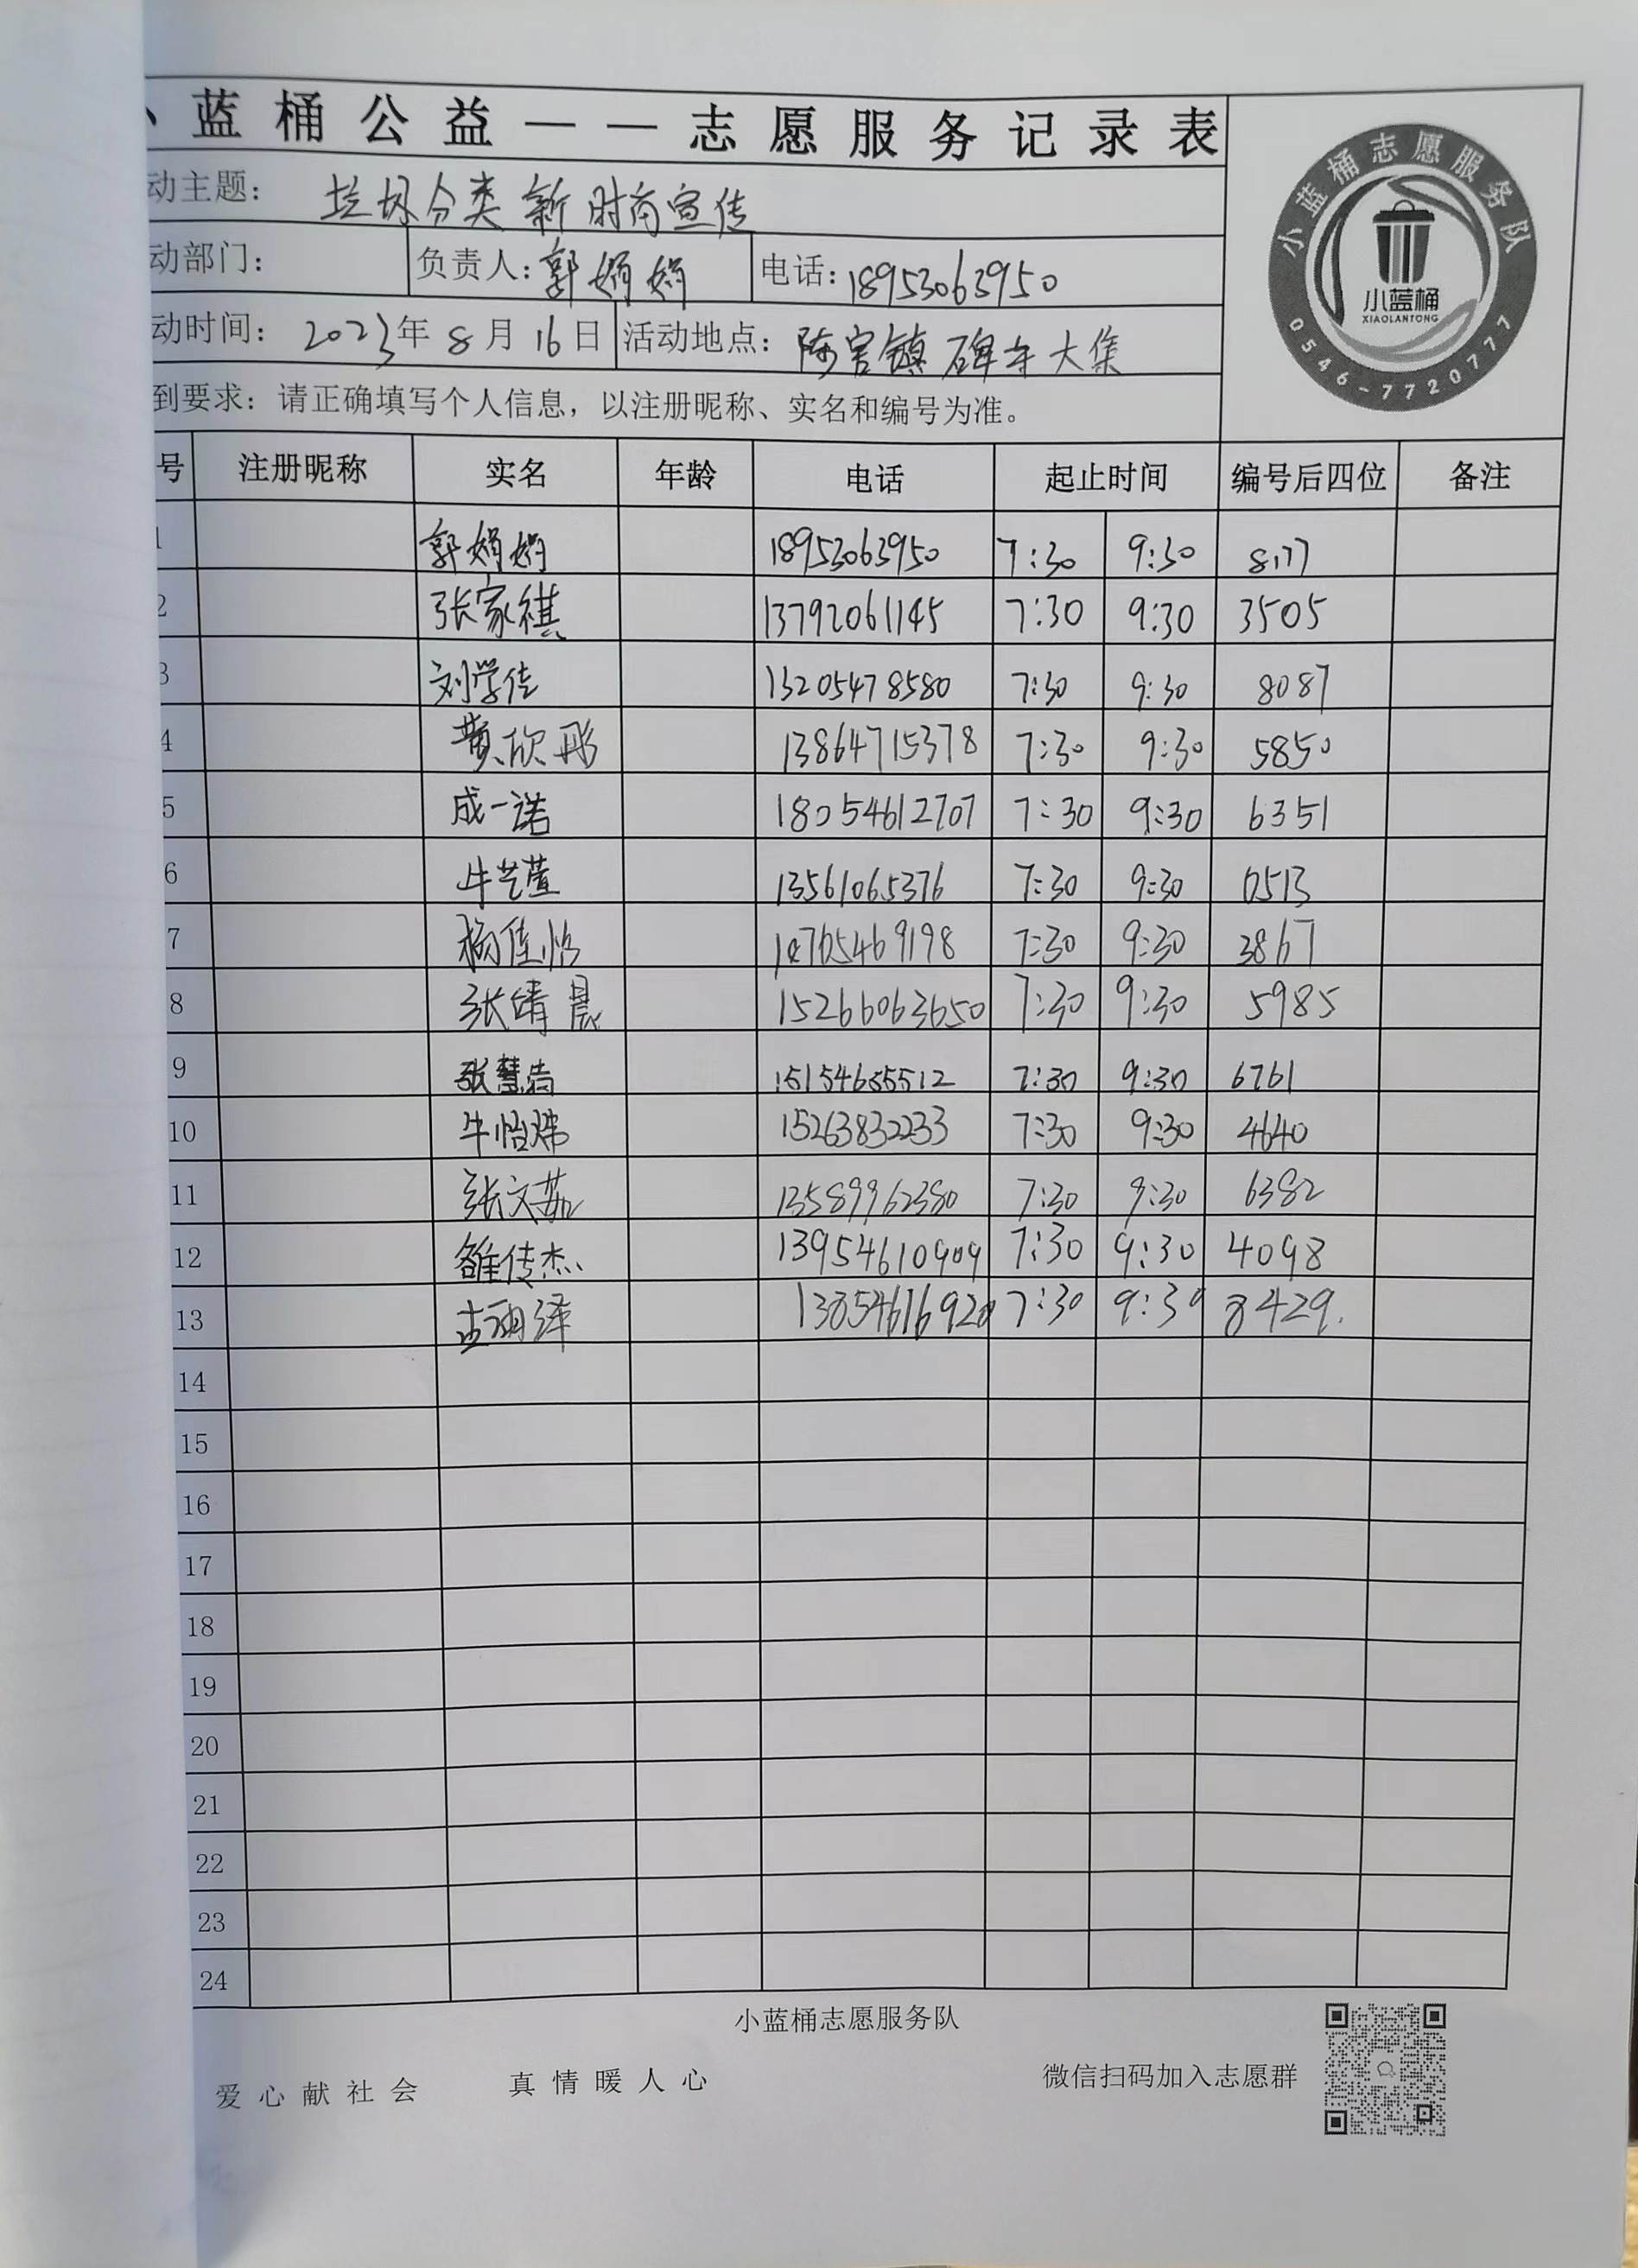 小蓝桶公益——志愿服务记录表
动主题: 垃圾分类新时尚宣传
动部门: 负责人:郭娟娟 电话:18953063950
动时间: 2023年8月16日 活动地点: 陈官镇碑寺大集
到要求:请正确填写个人信息,以注册昵称、实名和编号为准。
小蓝桶志愿服务队
小蓝桶
XIAOLANTONG
0546-7720777
号 注册昵称 实名 年龄 电话 起止时间 编号后四位 备注
1 郭娟娟 18953063950 7:30 9:30 8177
2 张家祺 13792061145 7:30 9:30 3505
3 刘学佳 13205478580 7:30 9:30 8087
4 黄欣彤 13864715378 7:30 9:30 5850
5 成一诺 18054612707 7:30 9:30 6351
6 牛艺萱 13561065376 7:30 9:30 0513
7 杨佳怡 7:30 9:30 3867
8 张婧晨 15266063650 7:30 9:30 5985
9 张慧洁 15154655512 7:30 9:30 6761
10 牛怡 15263832233 7:30 9:30 4640
11 张文茹 13589962380 7:30 9:30 6382
12 雒传杰 13954610909 7:30 9:30 4098
13 7:30 9:30 8429.
14
15
16
17
18
19
20
21
22
23
24
小蓝桶志愿服务队
爱心献社会 真情暖人心 微信扫码加入志愿群